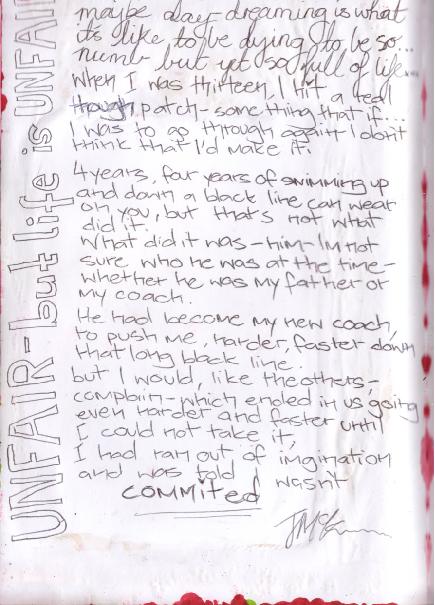 UNFAIR-but life is UNFAIR
maybe day-dreaming is what
its like to be dying, to be so...
numb but yet so full of life...
When I was thirteen, I hit a real
though patch - something that if...
I was to go through again I don't
think that I'd make it.
4 years, four years of swimming up
and down a black line can wear
on you, but that's not what
did it.
What did it was - him - Im not
sure who he was at the time -
whether he was my father or
my coach.
He had become my new coach,
to push me, harder, faster down
that long black line.
but I would, like the others -
complain - which ended in us going
even harder and faster until
I could not take it,
I had ran out of imgination
and was told wasn't
COMMITED